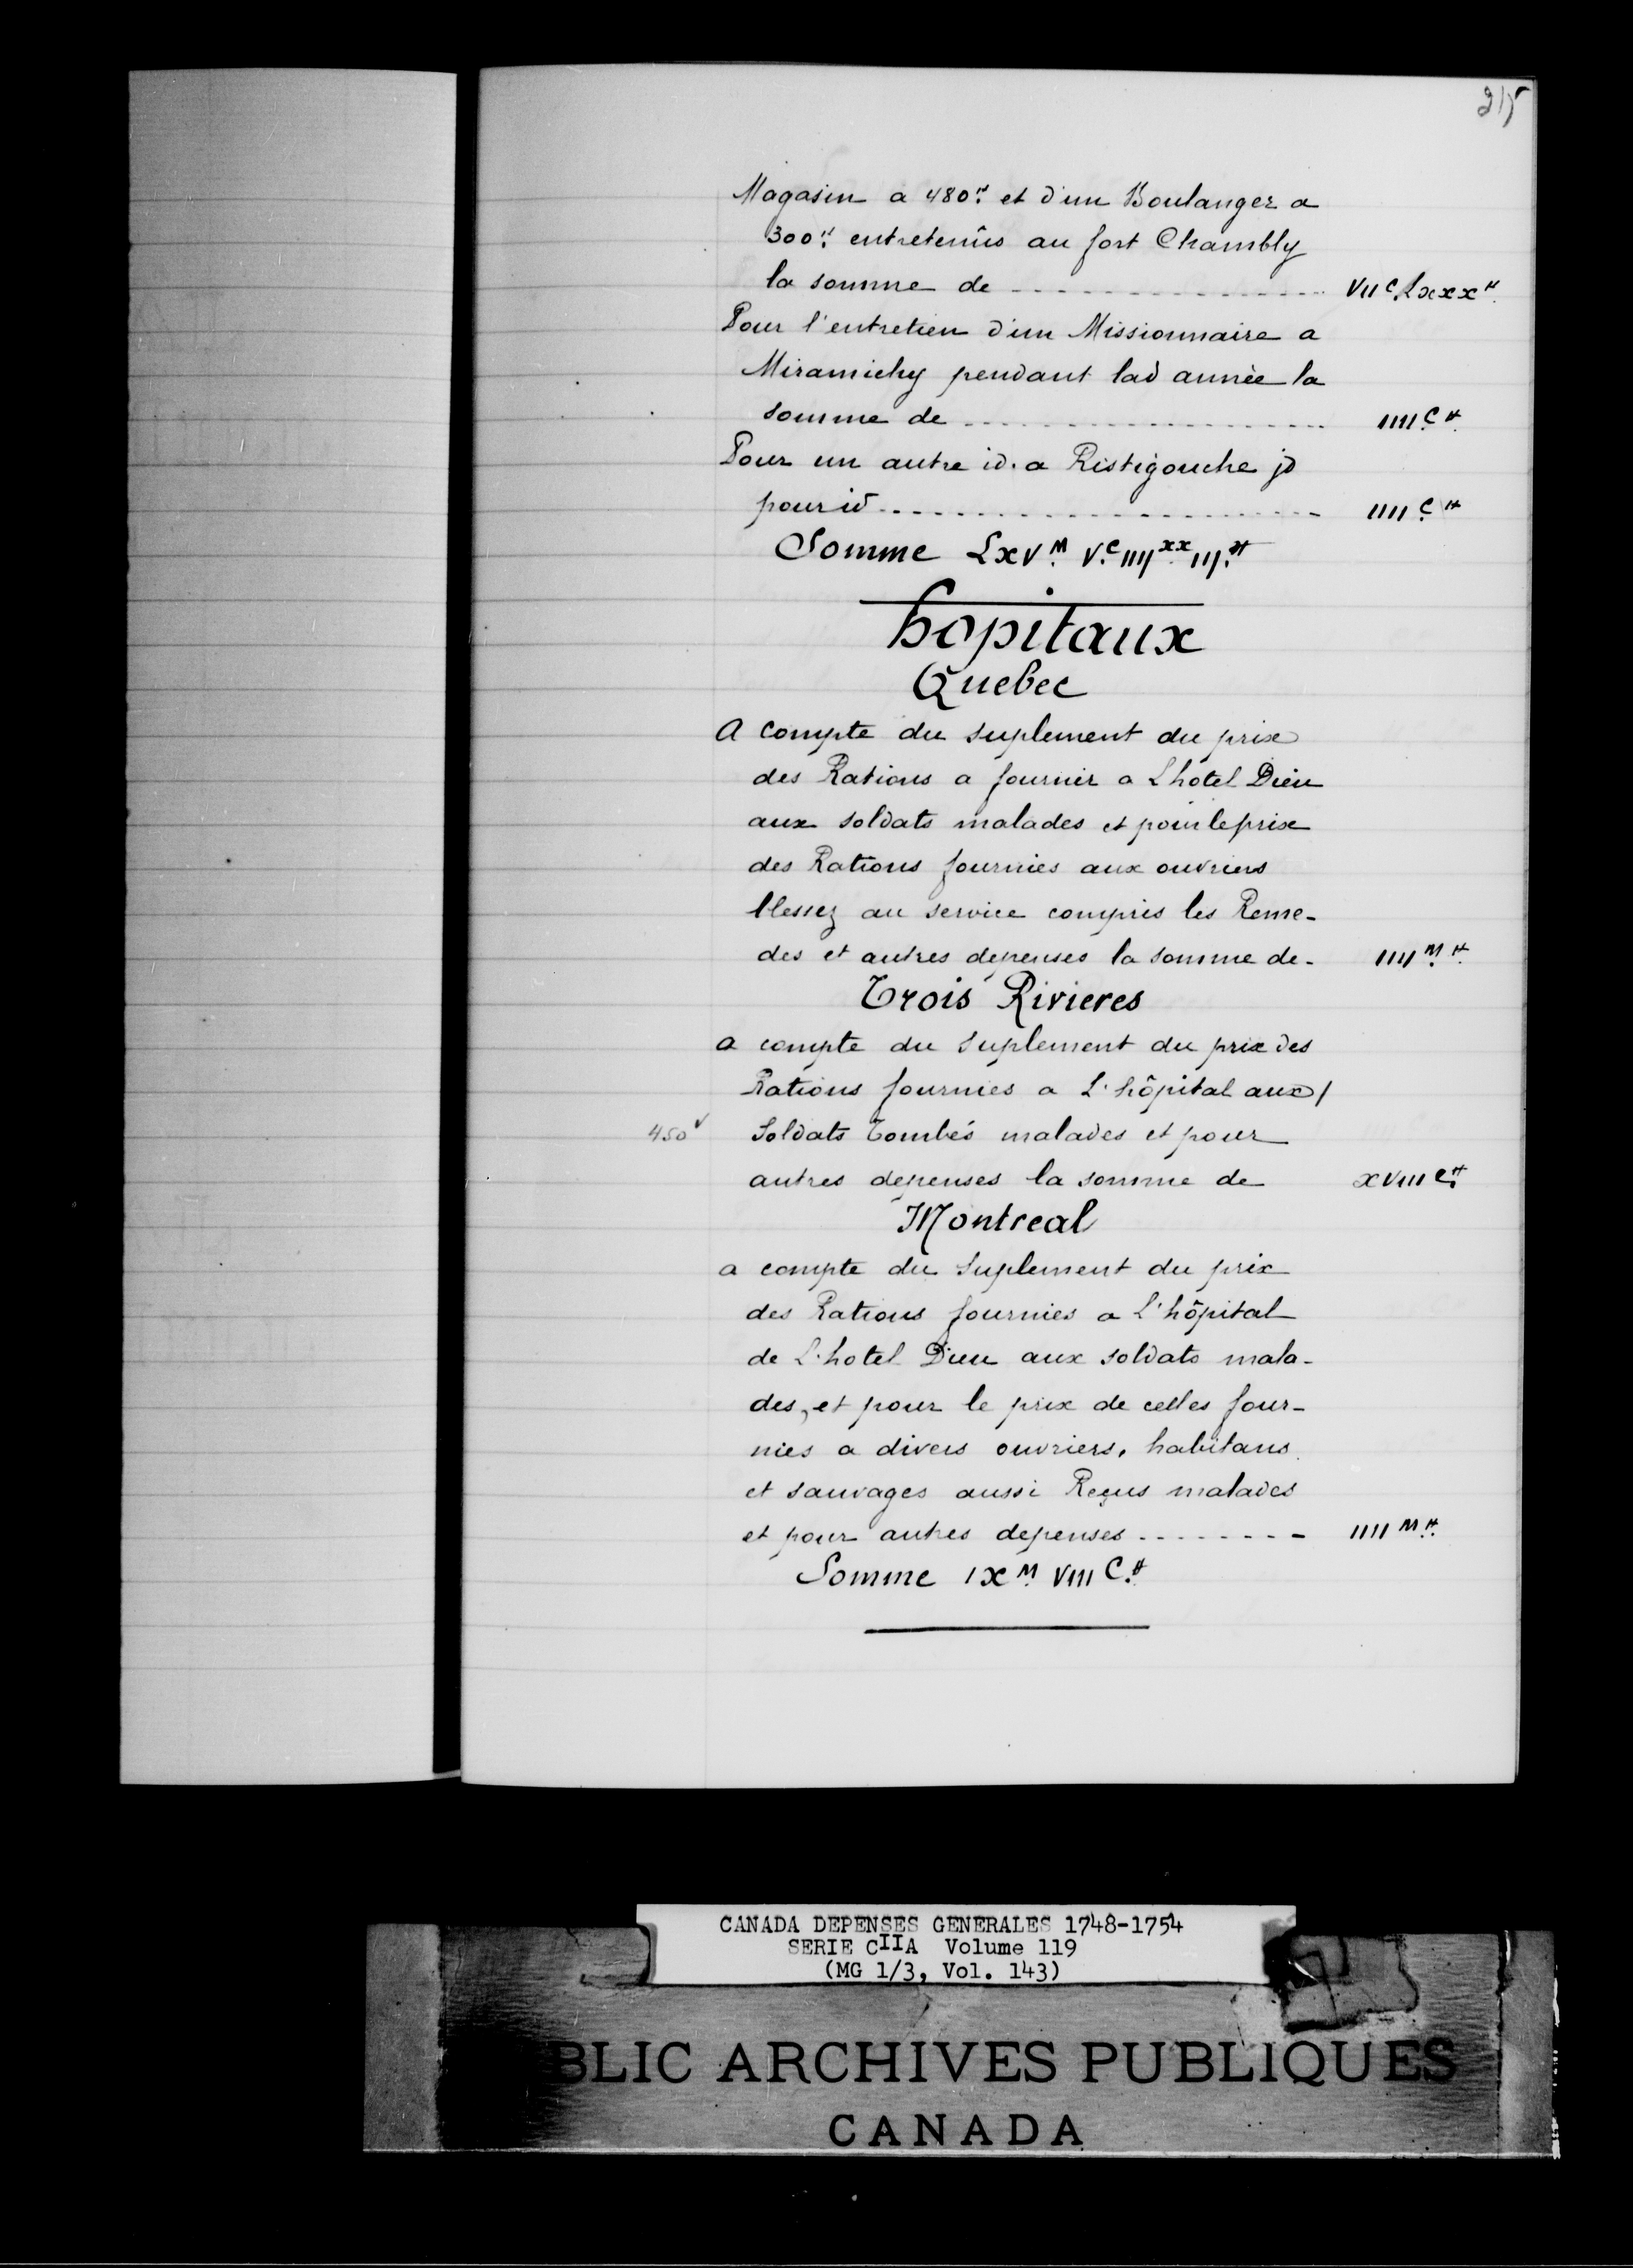 215
Magasin a 480ᴴ et d'un Boulanger a
300ᴴ entretenûs au fort Chambly
la somme de - - - - - - - - - - - - - - - VIIᶜ LxxxH
Pour l'entretien d'un Missionnaire a
Miramichy pendant lad année la
somme de - - - - - - - - - - - - - - - - - - IIIIᶜH
Pour un autre id. a Ristigouche jd
pour id - - - - - - - - - - - - - - - - - - - - - IIIIᶜH
Somme LxVᴹ Vᶜ IIIIˣˣ IIIH
hopitaux
Quebec
A compte du suplement du prix
des Rations a fournir a Lhotel Dieu
aux soldats malades et pour le prix
des Rations fournies aux ouvriers
blessez au service compris les Reme-
des et autres depenses la somme de - IIIIᴹH
Trois Rivieres
a compte du suplement du prix des
Rations fournies a L'hôpital aux /
450ᵛ Soldats tombés malades et pour
autres depenses la somme de xVIIIᶜH
Montreal
a compte du suplement du prix
des Rations fournies a L'hôpital
de L'hotel Dieu aux soldats mala-
des, et pour le prix de celles four-
nies a divers ouvriers, habitans
et sauvages aussi Reçus malades
et pour autres depenses - - - - - - - - IIIIᴹH
Somme IXᴹ VIIIᶜH
CANADA DEPENSES GENERALES 1748-1754
SERIE CIIA Volume 119
(MG 1/3, Vol. 143)
BLIC ARCHIVES PUBLIQUES
CANADA